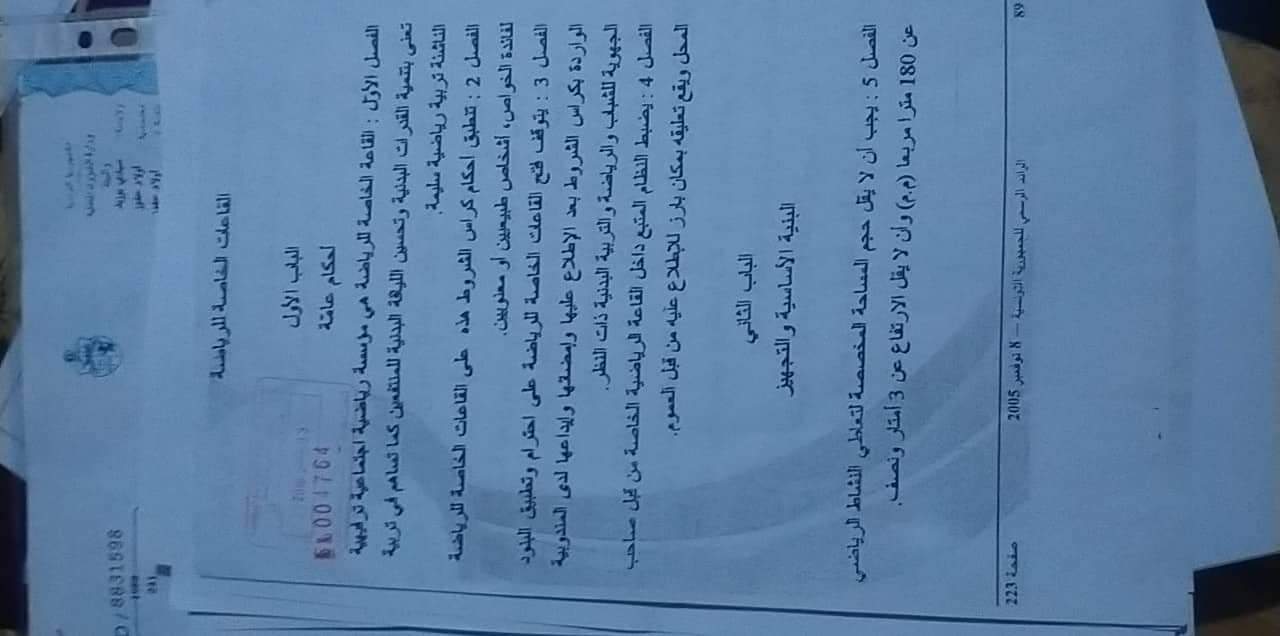 القاعات الخاصة للرياضة
الباب الأول
أحكام عامة
الفصل الأول : القاعة الخاصة للرياضة هي مؤسسة رياضية اجتماعية ترفيهية
تعنى بتنمية القدرات البدنية وتحسين اللياقة البدنية للمنتفعين كما تساهم في تربية
الناشئة تربية رياضية سليمة.
الفصل 2 : تنطبق أحكام كراس الشروط هذه على القاعات الخاصة للرياضة
لفائدة الخواص، أشخاص طبيعيين أو معنويين.
الفصل 3 : يتوقف فتح القاعات الخاصة للرياضة على احترام وتطبيق البنود
الواردة بكراس الشروط بعد الإطلاع عليها وإمضائها وإيداعها لدى المندوبية
الجهوية للشباب والرياضة والتربية البدنية ذات النظر.
الفصل 4 : يضبط النظام المتبع داخل القاعة الرياضية الخاصة من قبل صاحب
المحل ويقع تعليقه بمكان بارز للإطلاع عليه من قبل العموم.
الباب الثاني
البنية الأساسية والتجهيز
الفصل 5 : يجب أن لا يقل حجم المساحة المخصصة لتعاطي النشاط الرياضي
عن 180 مترا مربعا (م.م) وأن لا يقل الارتفاع عن 3 أمتار ونصف.
صفحة 223
الرائد الرسمي للجمهورية التونسية – 8 نوفمبر 2005
89
8831598